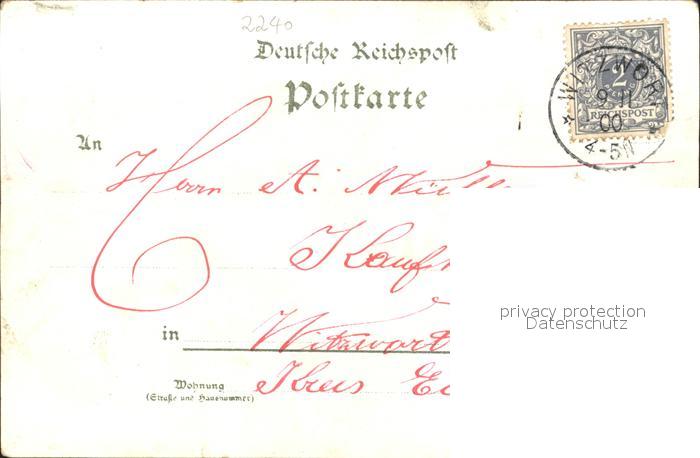 2240
Deutsche Reichspost
Postkarte
2
REICHSPOST
WITZWOR
9 11
00
4-5N
An
Herrn A. Müll
Kaufm
in Witzwort
Kreis Ei
Wohnung
(Straße und Hausnummer)
privacy protection
Datenschutz